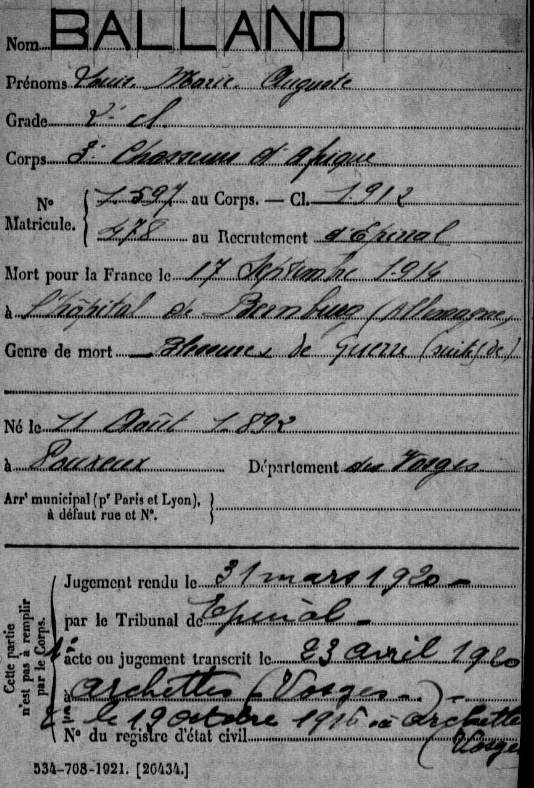 Nom BALLAND
Prénoms Louis Marie Auguste
Grade 2e cl
Corps 3e Chasseurs d'Afrique
No Matricule. { 1.597 au Corps. — Cl. 1912
478 au Recrutement d'Épinal
Mort pour la France le 17 Septembre 1914
à l'hôpital de Bernburg (Allemagne)
Genre de mort Blessures de Guerre (suites de)
Né le 11 Août 1892
à Pouxeux Département des Vosges
Arrt municipal (pr Paris et Lyon), }
à défaut rue et No.
Cette partie
n'est pas à remplir
par le Corps.
Jugement rendu le 31 mars 1920
par le Tribunal de Epinal
acte ou jugement transcrit le 23 avril 1920
à Archettes (Vosges)
le 19 octobre 1916 à Archettes
No du registre d'état civil (Vosges
534-708-1921. [26434.]